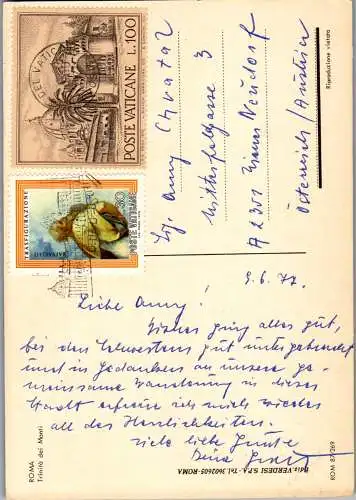 POSTE VATICANE L. 100
TRASFIGURAZIONE
RAFFAELLO
Anny Chvatal
3
A 2301 Wiener Neudorf
Österreich/Austria
Riproduzione vietata
9.6.77.
Liebe Anny!
Bisher ging alles gut,
bei den Schwestern gut untergebracht
und in Gedanken an unsere ge-
meinsame Wanderung in dieser
Stadt erfreue ich mich wieder
all der Herrlichkeiten.
Viele liebe Grüße
Deine
ROMA
Trinità dei Monti
Ediz. VERDESI S.P.A - Tel. 3602605-ROMA
ROM 87/269